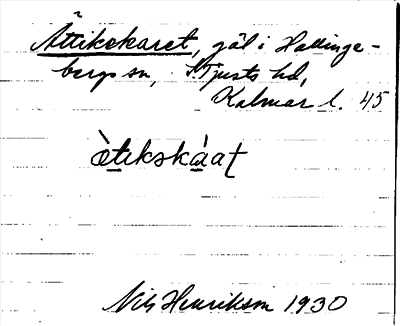 Ättikekaret, göl i Hallinge-
bergs sn, N Tjusts hd,
Kalmar l. 45
ètikskáat
Nils Henrikson 1930